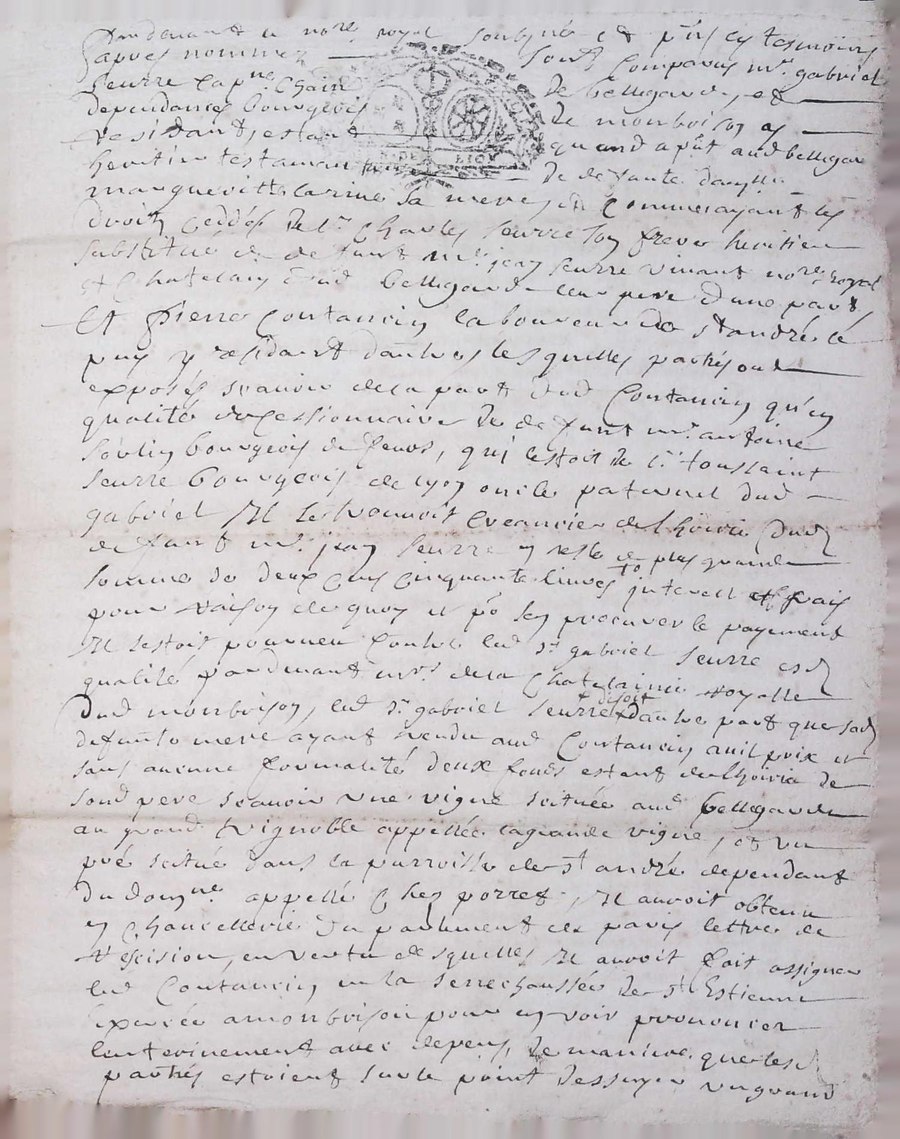 Pardevant le no.re royal soubsigné et pñs les tesmoins
apres nommez sont comparus m.r gabriel
Seurre cap.ne chain de bellegarde, et
dependances bourgeois de monbrison y
residant, estant quand a pñt aud bellegarde
heritier testamen de defante
margueritte larme sa mere, et comme ayant les
droits ceddés de s.r Charles Seurre son frere heritier
substitué de defunt m.r jean Seurre vivant no.re royal
et Chatelain dud bellegarde leur pere d'une part,
Et Pierre Coutancin laboureur de st andré le
puy y residant d'autre, lesquelles parties ont
exposés scavoir de la part dud Coutancin qu'en
qualité de cessionnaire de defunt m.r antoine
bourgeois de feurs, qui lestoit de s.r toussaint
Seurre bourgeois de lyon oncle paternel dud
gabriel Il se trouvoit creancier de lhoirie dud
defunt m.r jean Seurre en reste de plus grande
somme de deux cens cinquante livres interest et frais
pour raison de quoy et po.r sen procurer le payement
Il sestoit pourveu contre led s.r gabriel Seurre esd
qualité pardevant m.rs de la Chatelainie royalle
Dud monbrison, led s.r gabriel Seurre disoit d'autre part que sad
defunte mere ayant vendu aud Coutancin a vil prix et
sans aucune formalité deux fonds estant de lhoirie de
sond pere scavoir une vigne scituée aud bellegarde
au grand vignoble appellée la grande vigne, et un
pré scitué dans la parroisse de st andré dependant
du dom.ne appellé Chez porret, Il avoit obtenu
en Chancellerie du parlement de paris lettre de
rescision, en vertu desquelles Il avoit fait assigner
led Coutancin en la senechaussée de st Estienne
exercée a monbrison pour en voir prononcer
lenterinement avec depens, de maniere que lesd
parties estoient sur le point dessuyer un grand